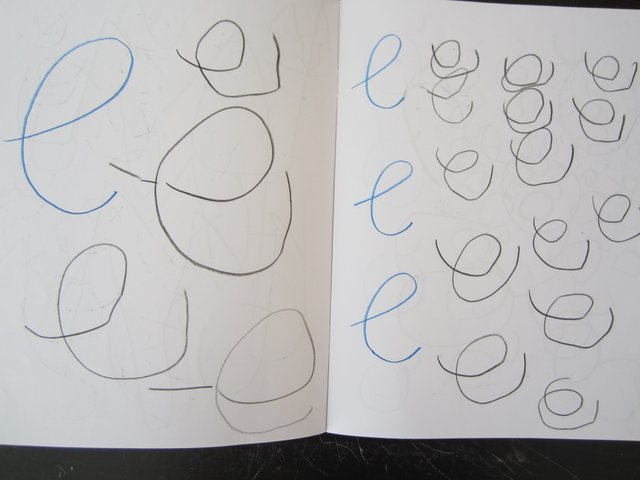 e e
e
e e
e e e e
e e e
e e e
e e e
e e e
e